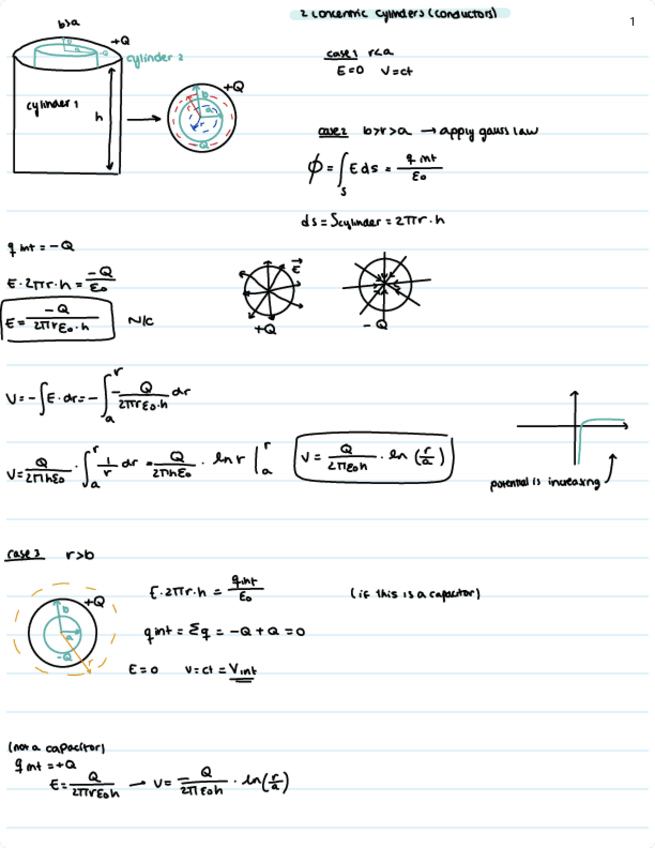 2 concentric cylinders (conductors)
1
b>a
+Q
b
a
-Q
cylinder 2
cylinder 1
h
+Q
b
a
r
r
-Q
case 1 r<a
E=0 V=ct
case 2 b>r>a → apply gauss law
ϕ = ∫_S E ds = q int / ε₀
ds = S cylinder = 2πr·h
q int = -Q
E·2πr·h = -Q / ε₀
E = -Q / 2πrε₀·h N/C
E⃗
+Q
-Q
V = -∫E·dr = -∫_a^r - Q / 2πrε₀·h dr
V = Q / 2πhε₀ · ∫_a^r 1/r dr = Q / 2πhε₀ · ln r |_a^r
V = Q / 2πε₀h · ln (r/a)
potential is increasing
case 3 r>b
+Q
b
a
-Q
r
E·2πr·h = qint / ε₀ (if this is a capacitor)
qint = Σq = -Q+Q = 0
E=0 V=ct=Vint
(not a capacitor)
q int = +Q
E = Q / 2πrε₀h → V = - Q / 2πε₀h · ln(r/a)